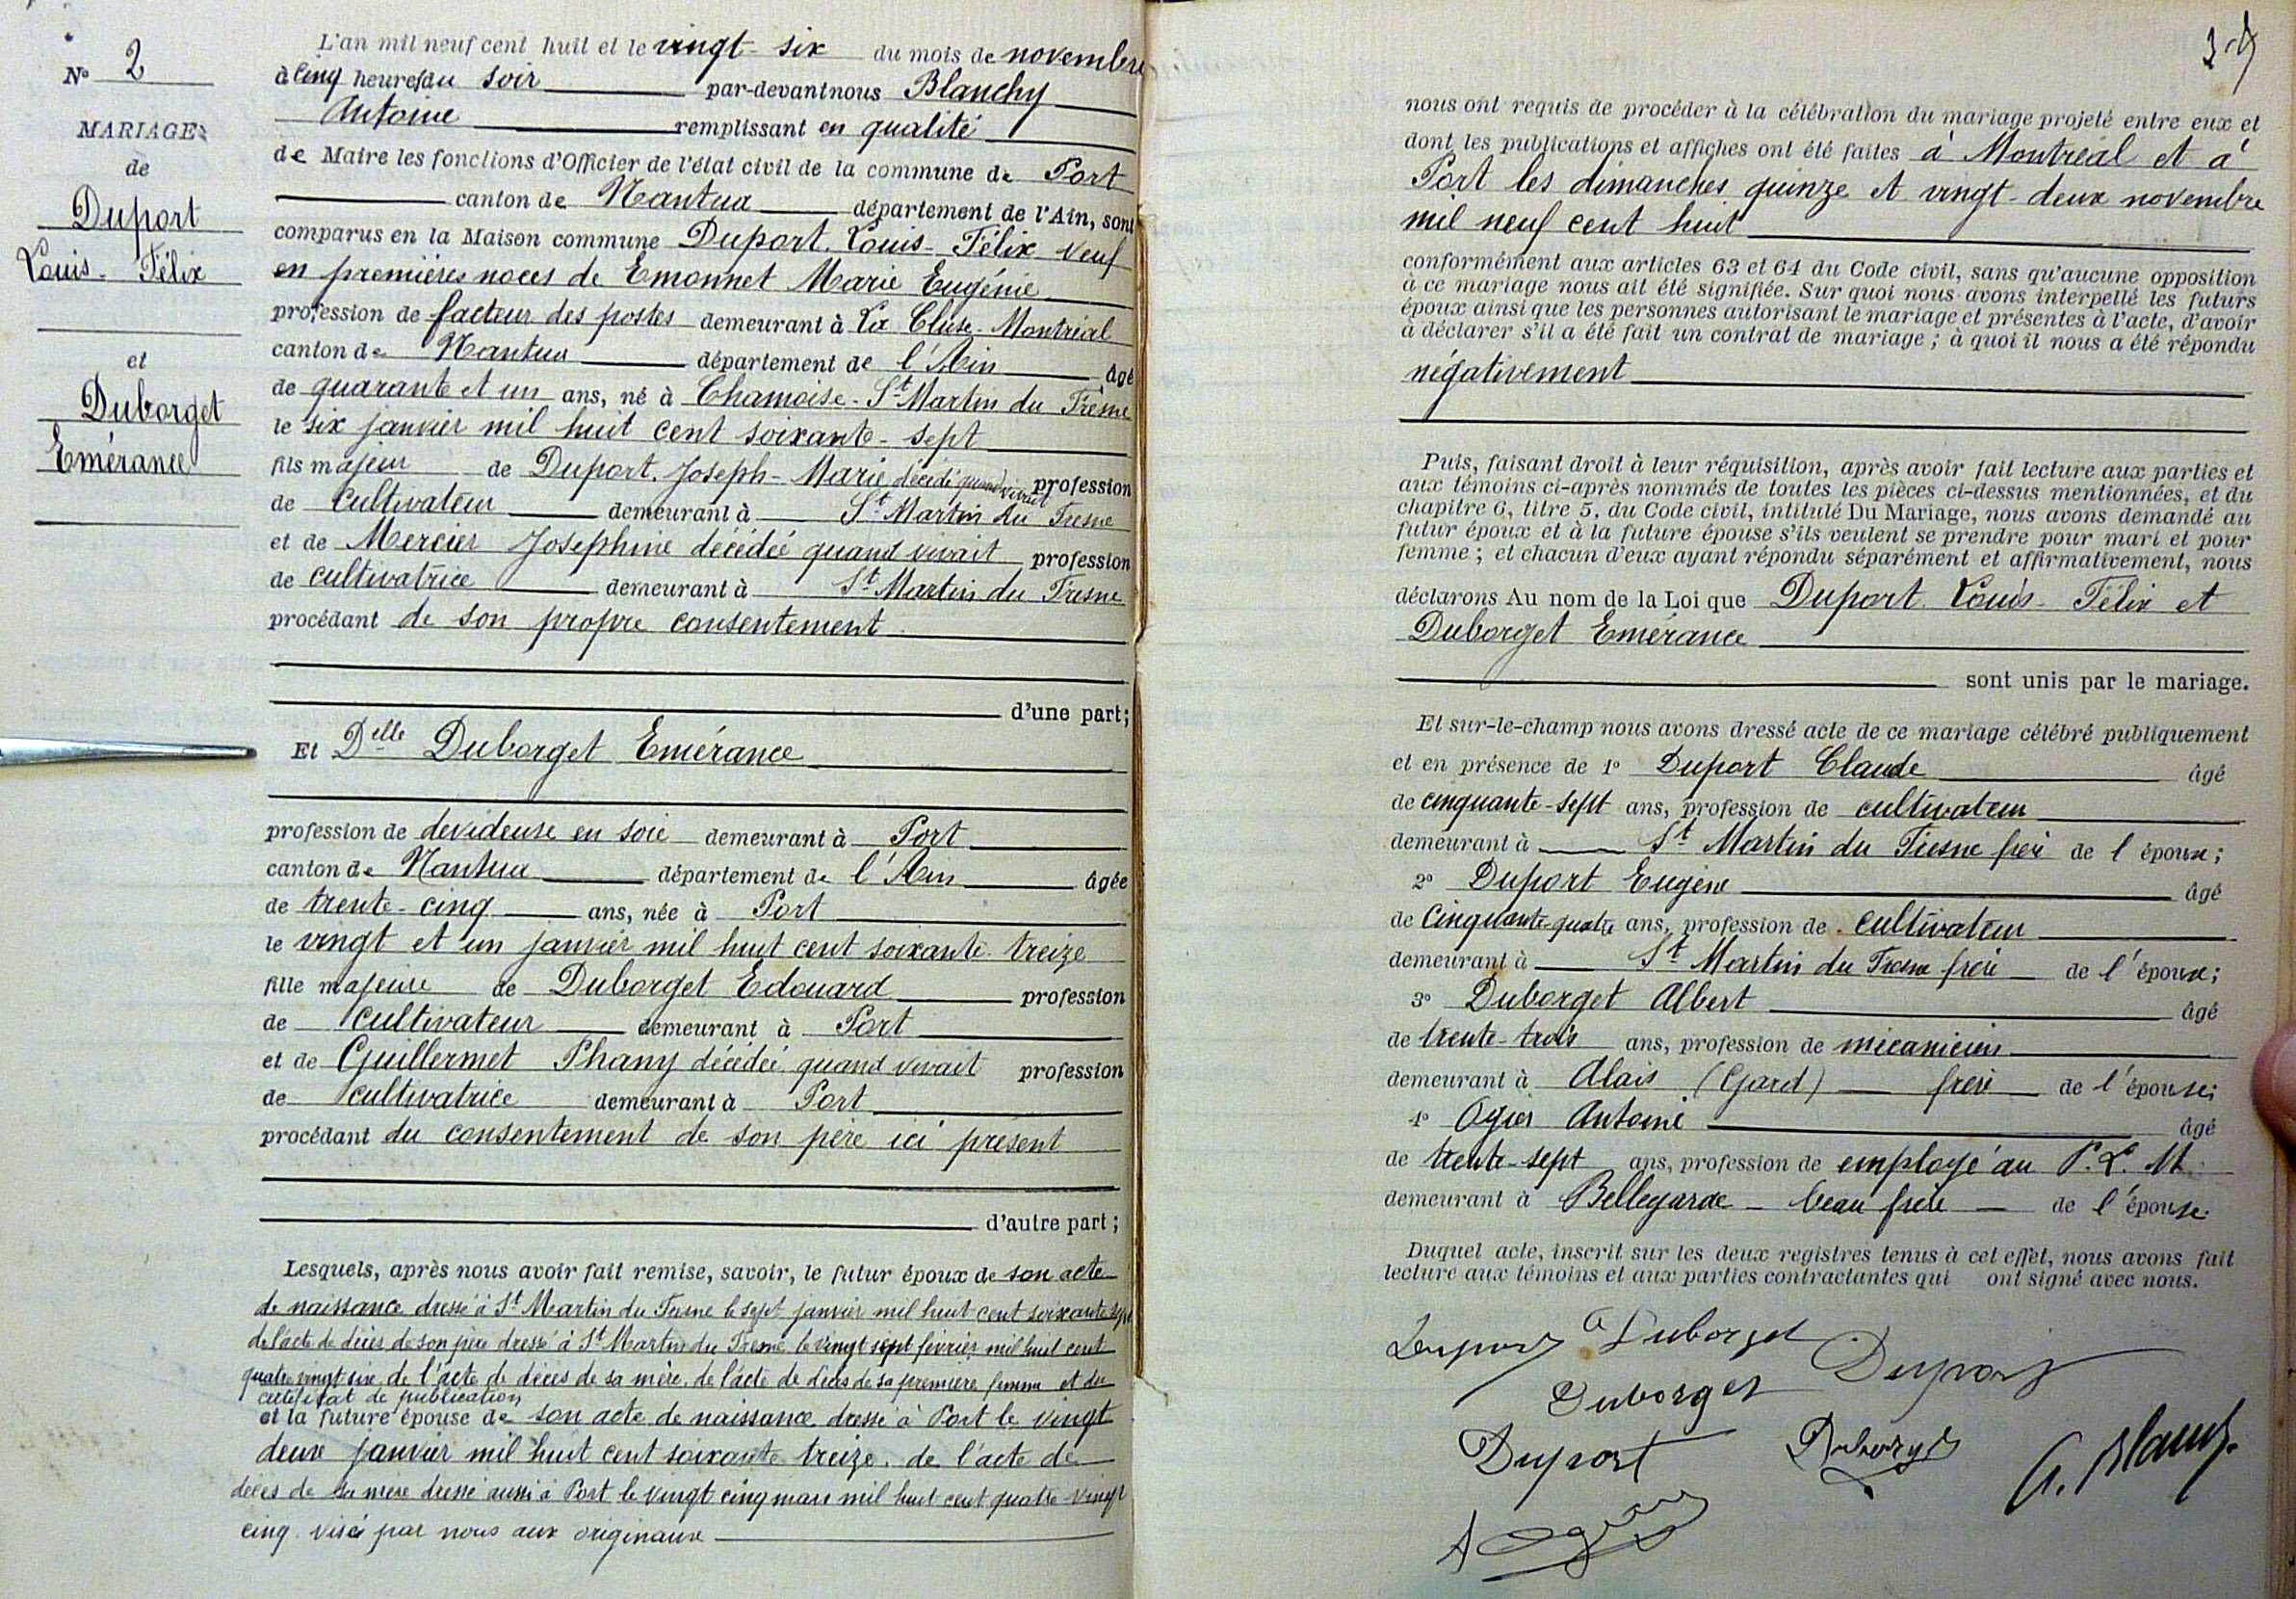 N° 2
MARIAGE
de
Duport
Louis-Félix
et
Duborget
Emérance
L'an mil neuf cent huit et le vingt-six du mois de novembre
à cinq heures du soir par-devant nous Blanchy
Antoine remplissant en qualité
de Maire les fonctions d'Officier de l'état civil de la commune de Port
canton de Nantua département de l'Ain, sont
comparus en la Maison commune Duport Louis-Félix veuf
en premières noces de Emonnet Marie Eugénie
profession de facteur des postes demeurant à La Cluse-Montréal
canton de Nantua département de l'Ain âgé
de quarante et un ans, né à Chamoise-St Martin du Fresne
le six janvier mil huit cent soixante-sept
fils majeur de Duport Joseph-Marie décédé quand vivait profession
de cultivateur demeurant à St Martin du Fresne
et de Mercier Joséphine décédée quand vivait profession
de cultivatrice demeurant à St Martin du Fresne
procédant de son propre consentement
d'une part;
Et Delle Duborget Emérance
profession de devideuse en soie demeurant à Port
canton de Nantua département de l'Ain âgée
de trente-cinq ans, née à Port
le vingt et un janvier mil huit cent soixante treize
fille majeure de Duborget Edouard profession
de cultivateur demeurant à Port
et de Guillermet Phany décédée quand vivait profession
de cultivatrice demeurant à Port
procédant du consentement de son père ici présent
d'autre part;
Lesquels, après nous avoir fait remise, savoir, le futur époux de son acte
de naissance dressé à St Martin du Fresne le sept janvier mil huit cent soixante sept
de l'acte de décès de son père dressé à St Martin du Fresne le vingt sept février mil huit cent
quatre vingt six, de l'acte de décès de sa mère, de l'acte de décès de sa première femme et du
certificat de publication
et la future épouse de son acte de naissance dressé à Port le vingt
deux janvier mil huit cent soixante treize. de l'acte de
décès de sa mère dressé aussi à Port le vingt cinq mars mil huit cent quatre-vingt
cinq. visés par nous aux originaux
nous ont requis de procéder à la célébration du mariage projeté entre eux et
dont les publications et affiches ont été faites à Montreal et à
Port les dimanches quinze et vingt-deux novembre
mil neuf cent huit
conformément aux articles 63 et 64 du Code civil, sans qu'aucune opposition
à ce mariage nous ait été signifiée. Sur quoi nous avons interpellé les futurs
époux ainsi que les personnes autorisant le mariage et présentes à l'acte, d'avoir
à déclarer s'il a été fait un contrat de mariage; à quoi il nous a été répondu
négativement
Puis, faisant droit à leur réquisition, après avoir fait lecture aux parties et
aux témoins ci-après nommés de toutes les pièces ci-dessus mentionnées, et du
chapitre 6, titre 5, du Code civil, intitulé Du Mariage, nous avons demandé au
futur époux et à la future épouse s'ils veulent se prendre pour mari et pour
femme; et chacun d'eux ayant répondu séparément et affirmativement, nous
déclarons Au nom de la Loi que Duport Louis-Félix et
Duborget Emérance
sont unis par le mariage.
Et sur-le-champ nous avons dressé acte de ce mariage célébré publiquement
et en présence de 1° Duport Claude âgé
de cinquante-sept ans, profession de cultivateur
demeurant à St Martin du Fresne frère de l'époux;
2° Duport Eugène âgé
de cinquante-quatre ans, profession de cultivateur
demeurant à St Martin du Fresne frère de l'époux;
3° Duborget Albert âgé
de trente-trois ans, profession de mécanicien
demeurant à Alais (Gard) frère de l'épouse;
4° Ogier Antoine âgé
de trente-sept ans, profession de employé au P.L.M.
demeurant à Bellegarde - beau frère - de l'épouse.
Duquel acte, inscrit sur les deux registres tenus à cet effet, nous avons fait
lecture aux témoins et aux parties contractantes qui ont signé avec nous.
Duport
Duborget
Duport
Duborget
Duport
Duborget
A. Blanchy
A Ogier